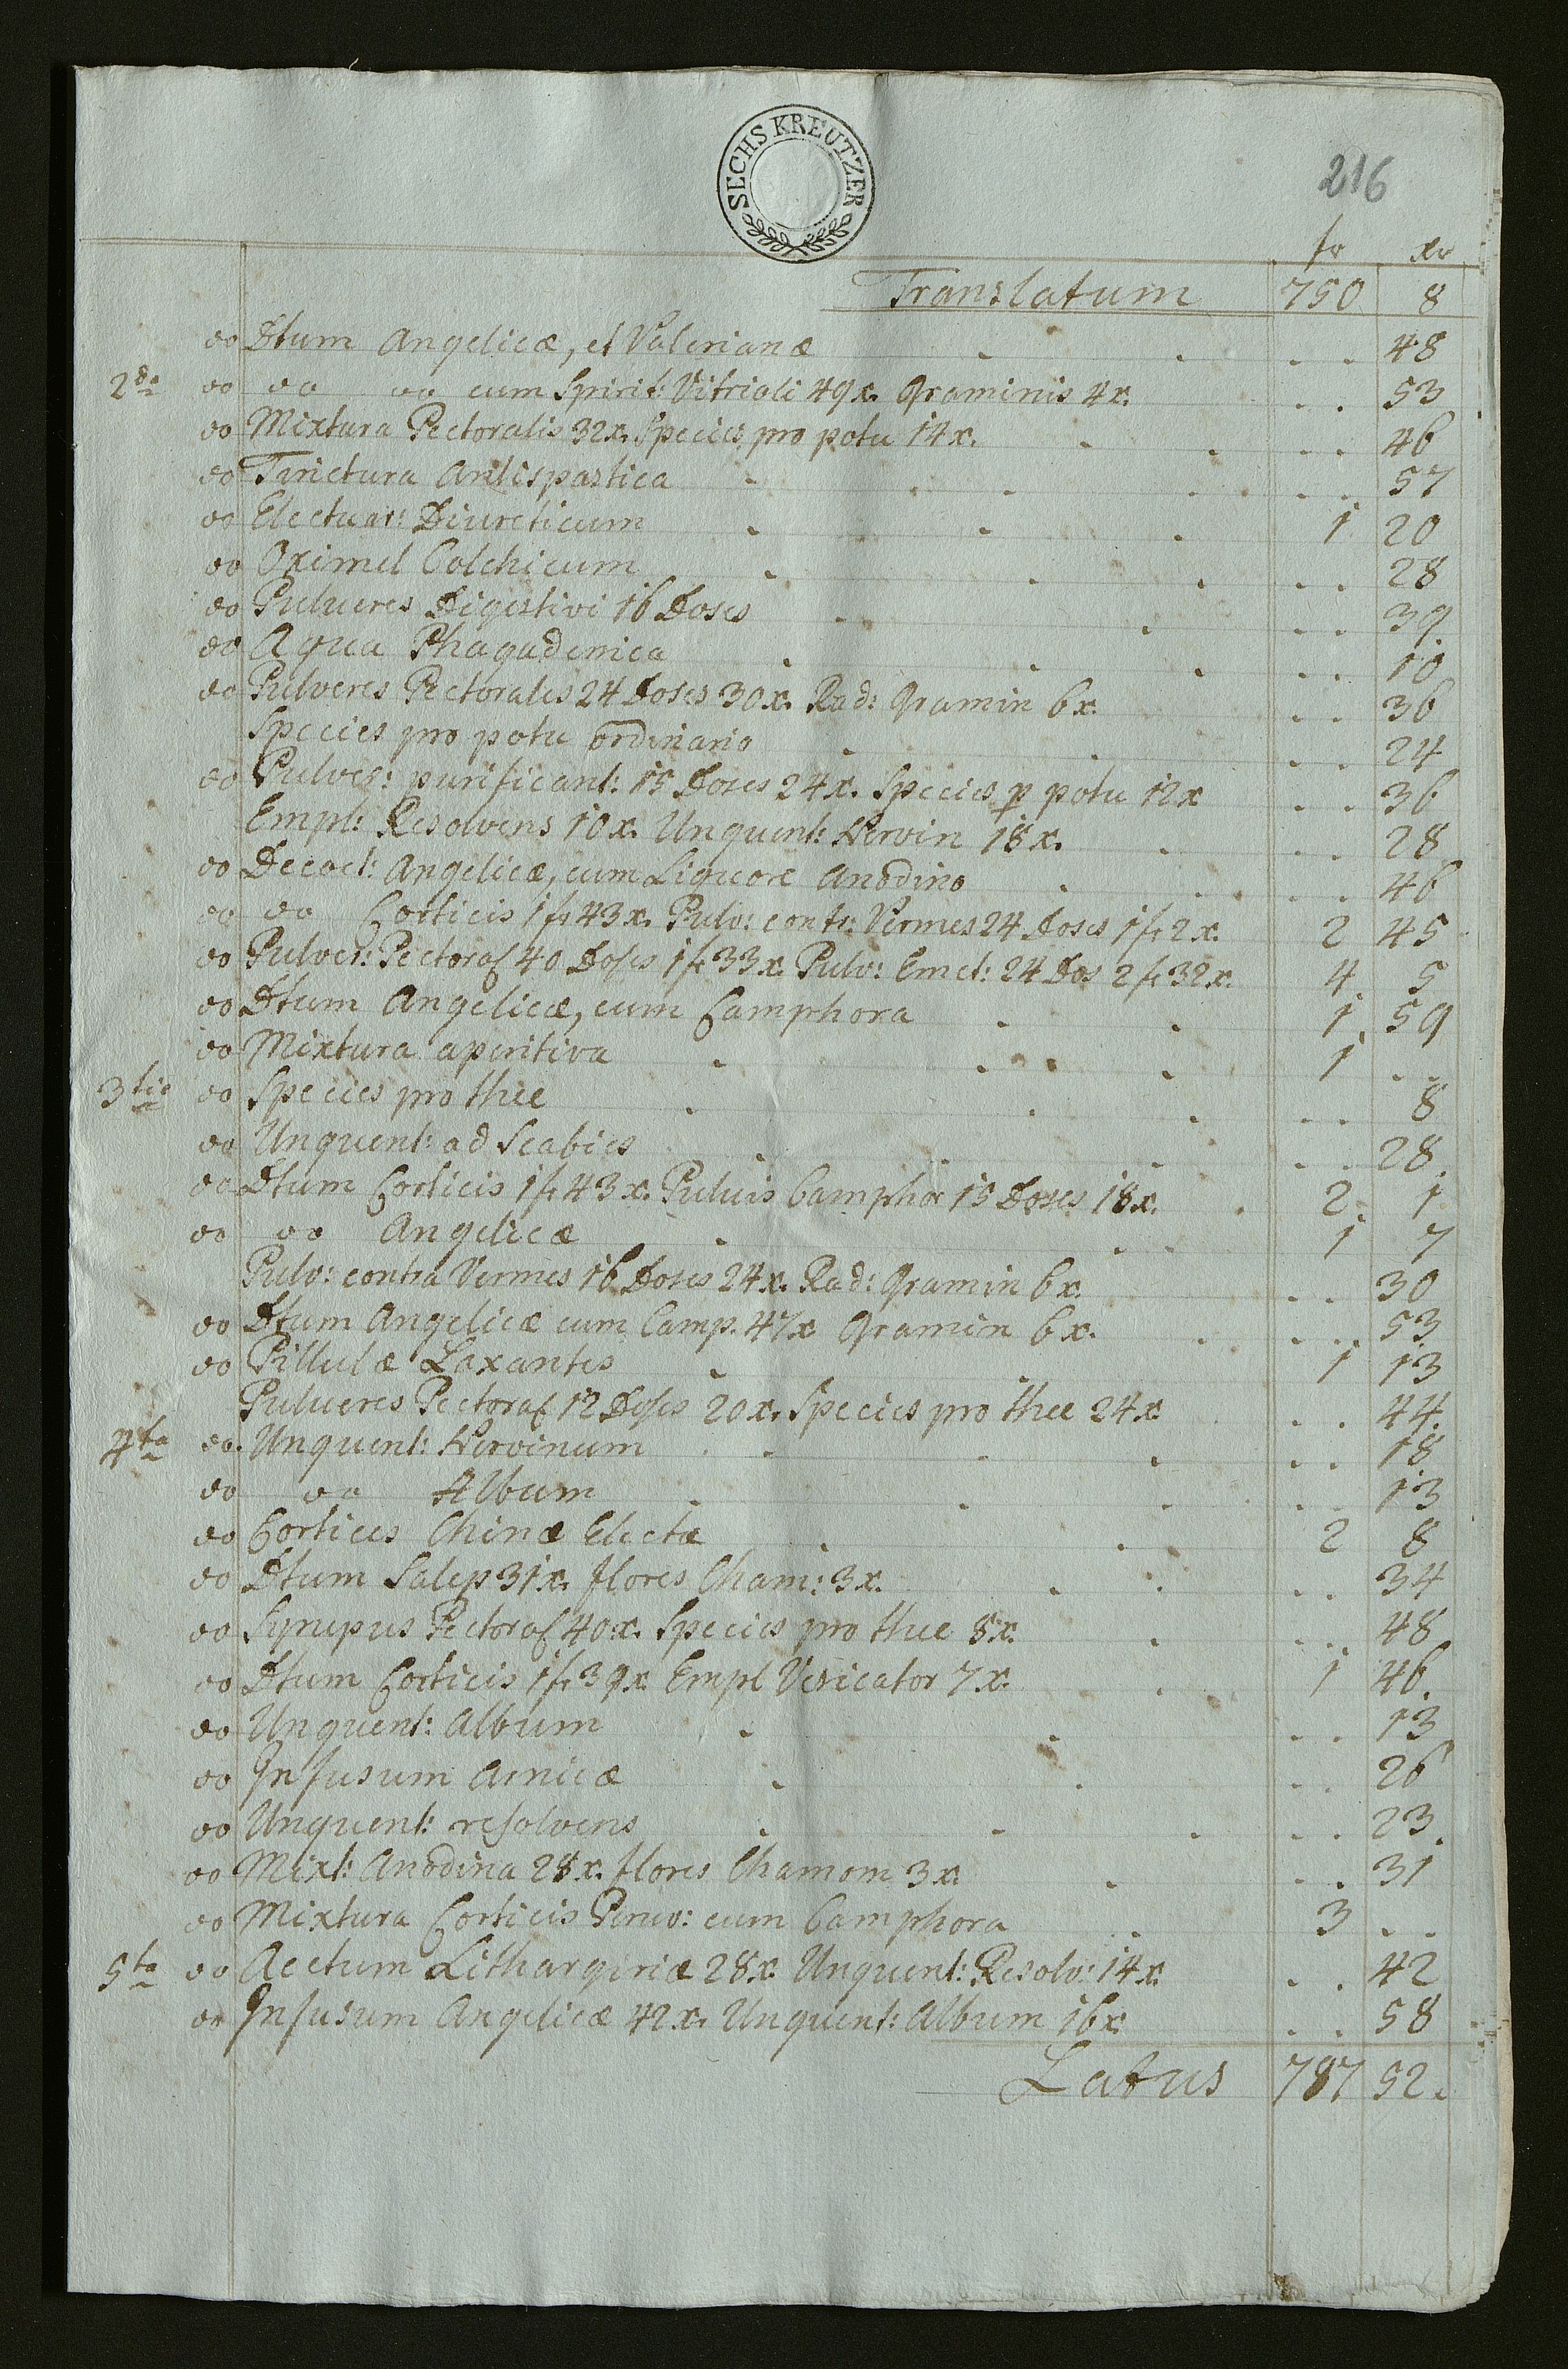 SECHS KREUTZER
216
fr xr
Translatum 750 8
do Dtum Angelicæ, et Valerianæ . . . . 48
2da do do do cum Spirit: Vitrioli 49x. Graminis 4x. . . 53
do Mixtura Pectoralis 32x. Species pro potu 14x. . . . . 46
do Tinctura Antispastica . . . . . . 57
do Electuar: Diureticum . . . 1 20
do Oximel Colchicum . . . . . 28
do Pulueres Digestivi 16 Doses . . . . 39
do Aqua Phagadenica . . . . . 10
do Pulveres Pectorales 24 Doses 30x. Rad: Gramin 6x. . . 36
Species pro potu ordinario . . . . 24
do Pulver: purificant: 15 Doses 24x. Species p potu 12x . . 36
Empl: Resolvens 10x. Unguent: Nervin 18x. . . . 28
do Decoct: Angelicæ, cum Liquore Anodino . . . . 46
do do Corticis 1fr 43x. Pulv: contr: Vermes 24 Doses 1fr 2x. 2 45
do Pulver: Pectoral 40 Doses 1fr 33x. Pulv: Emet: 24 Dos 2fr 32x. 4 5
do Dtum Angelicæ, cum Camphora . . 1 59
do Mixtura aperitiva . . . 1 . .
3tie do Species pro thee . . . . . 8
do Unguent: ad Scabies . . . . 28
do Dtum Corticis 1fr 43x. Puluis Camphor 15 Doses 18x. . 2 1
do do Angelicæ . . . 1 7
Pulv: contra Vermes 16 Doses 24x. Rad: Gramin 6x. . . 30
do Dtum Angelicæ cum Camp. 47x Gramin 6x. . . . 53
do Pillulæ Laxantes . 1 13
Pulueres Pectoral 12 Doses 20x. Species pro thee 24x . . 44
4ta do Unguent: Nervinum . . . . . 18
do do Album . . . . . 13
do Cortices Chinæ Electæ . . 2 8
do Dtum Salep 31x. flores Cham: 3x. . . . . 34
do Syrupus Pectoral 40x. Species pro thee 8x. . . . 48
do Dtum Corticis 1fr 39x Empl Vesicator 7x. . 1 46
do Unguent: Album . . . . 13
do Infusum Arnicæ . . . . 26
do Unguent: resolvens . . . . . 23
do Mixt: Anodina 28x. flores Chamom 3x. . . . 31
do Mixtura Corticis Peruv: cum Camphora . 3 . .
5ta do Acetum Lithargiriæ 28x. Unguent: Resolv: 14x. . . 42
do Infusum Angelicæ 42x. Unguent: Album 16x . . 58
Latus 787 52.